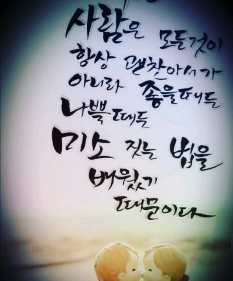 사람은 모든것이
항상 괜찮아서가
아니라 좋을때든
나쁠때든
미소 짓는 법을
배웠기
때문이다